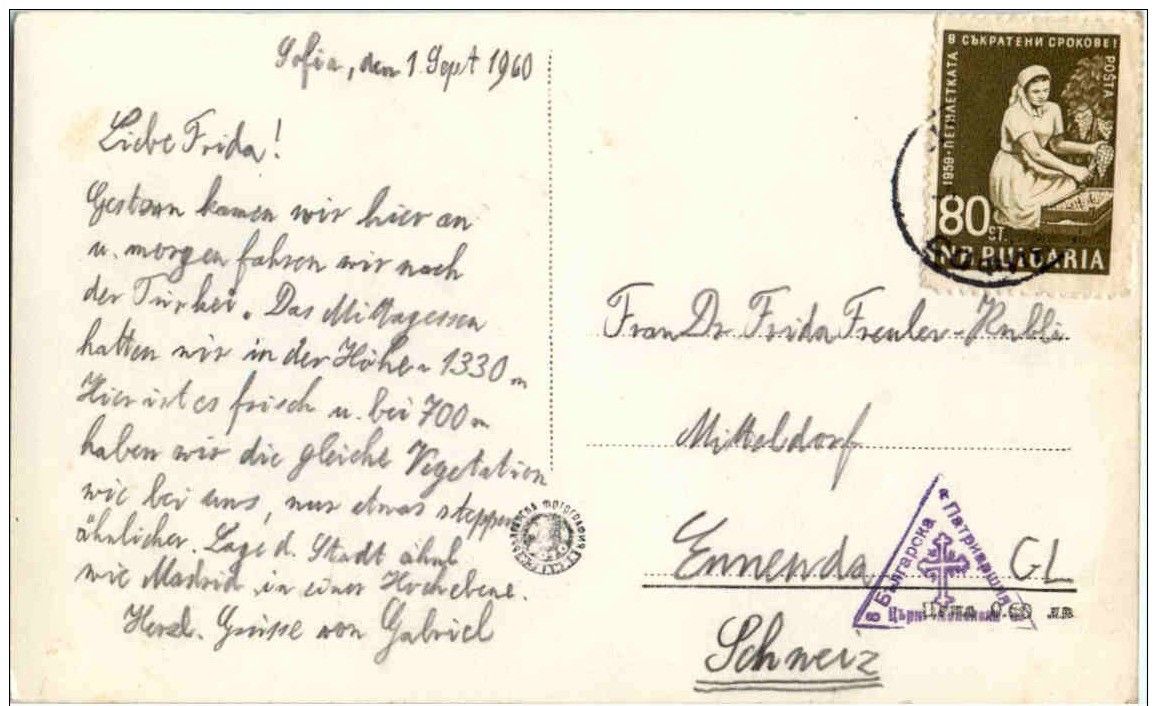 Sofia, den 1 Sept 1960
Liebe Frida!
Gestern kamen wir hier an
u. morgen fahren wir nach
der Türkei. Das Mittagessen
hatten wir in der Höhe 1330 m
Hier ist es frisch u. bei 700 m
haben wir die gleiche Vegetation
wie bei uns, nur etwas steppen
ähnlicher. Lage d. Stadt ähnl
wie Madrid in einer Hochebene.
Herzl. Grüsse von Gabriel
1959 · ПЕТИЛЕТКАТА
В СЪКРАТЕНИ СРОКОВЕ!
POŠTA
80 СТ.
NR BULGARIA
Frau Dr Frida Freuler-Kubli
Mitteldorf
Ennenda GL
Schweiz
Българска
Патриаршия
Цена 0.60 лв